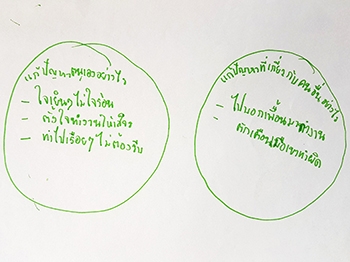 แก้ปัญหาตนเองอย่างไร
- ใจเย็นๆ ไม่ใจร้อน
- ตั้งใจทำงานให้เสร็จ
- ทำไปเรื่อยๆ ไม่ต้องรีบ
แก้ปัญหาที่เกี่ยวกับคนอื่นอย่างไร
- ไปบอกเพื่อนมาทำงาน
- ตักเตือนเมื่อเขาทำผิด